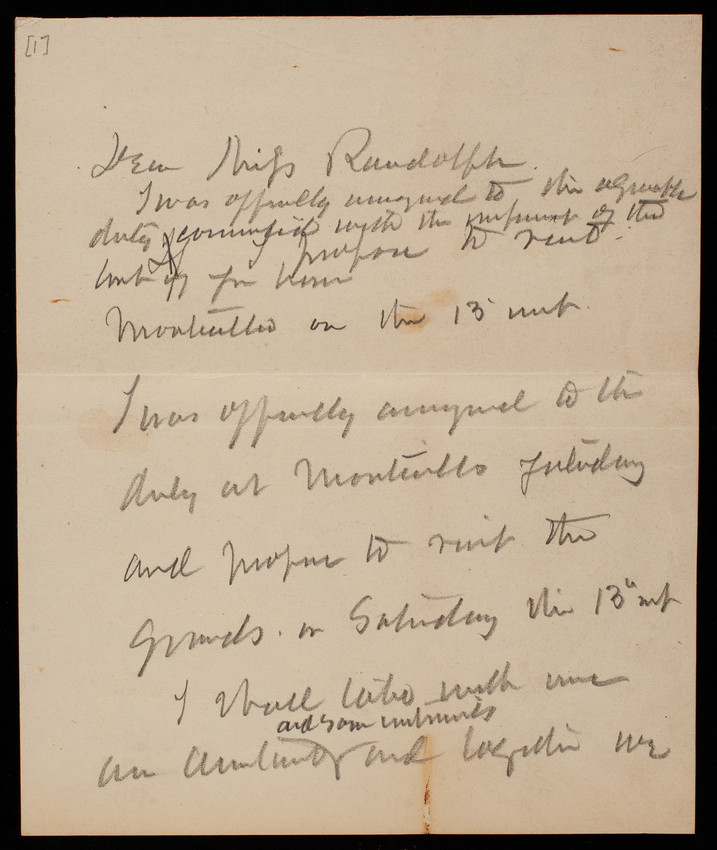 [1]
Dear Miss Randolph.
I was officially assigned to the agreeable
duty connected with the monument of the
propose to visit
Monticello on the 13 inst.
I was officially assigned to the
duty at Monticello yesterday
and propose to visit the
grounds on Saturday the 13" inst
I shall take with me
and some instruments
an assistant and together we